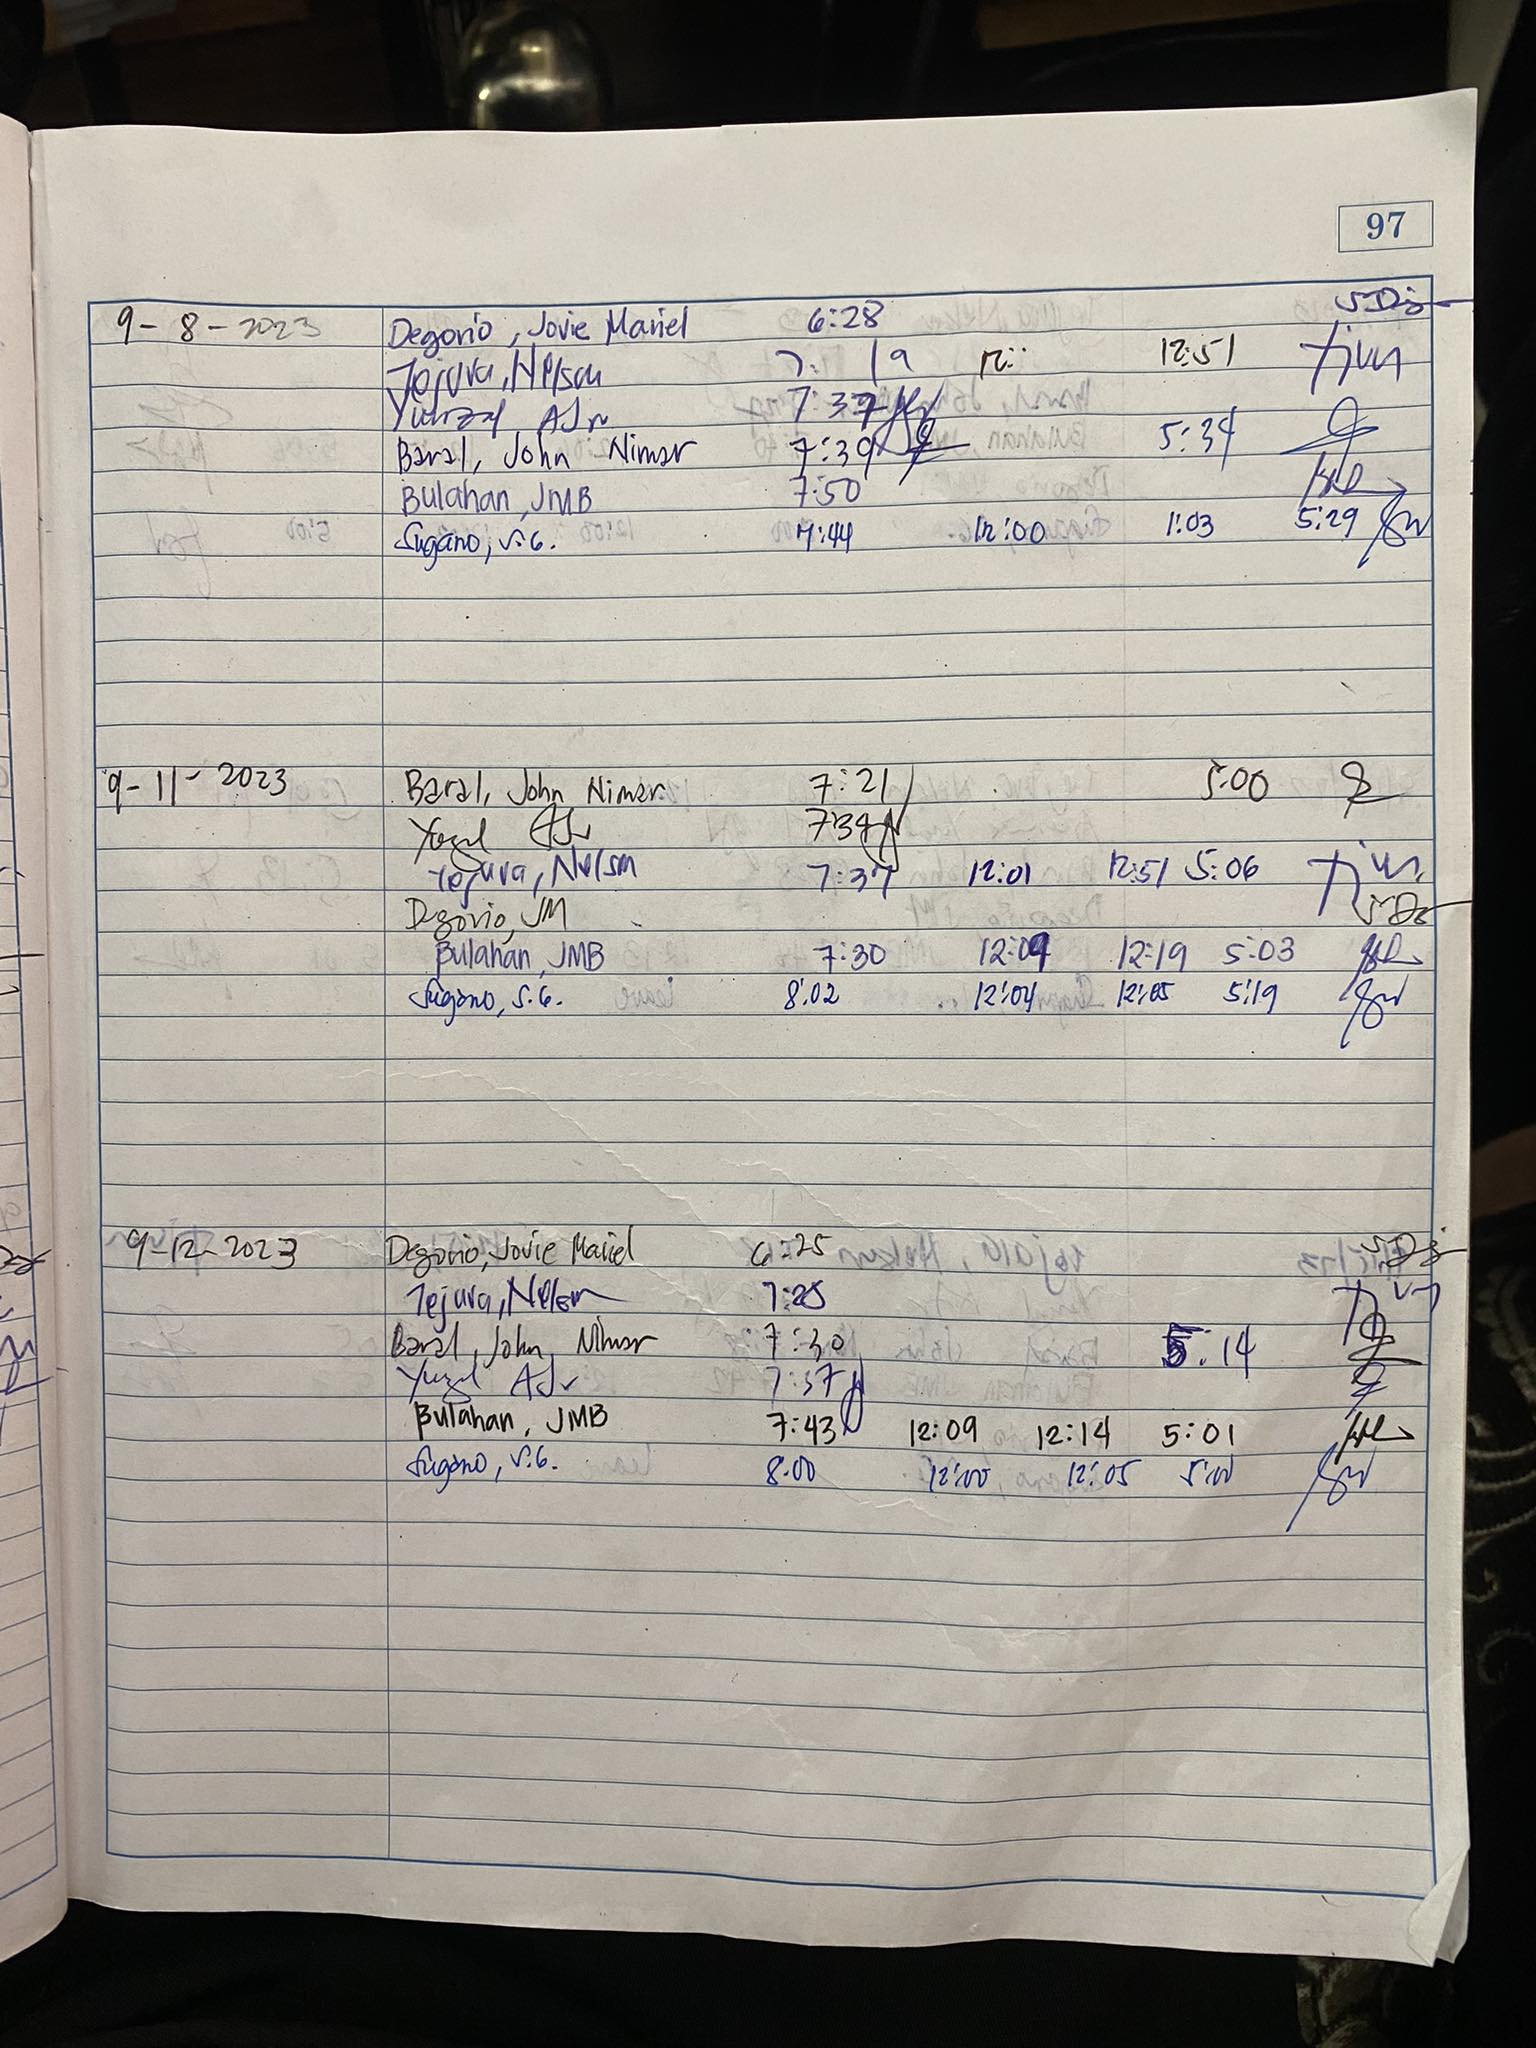 97
9-8-2023 Degorio, Jovie Mariel 6:28
Tejura, Nelson 7:19 12: 12:51
7:37
Baral, John Nimar 7:39 5:34
Bulahan, JMB 7:50
Sugano, S.G. 7:44 12:00 1:03 5:29
9-11-2023 Baral, John Nimar 7:21 5:00
734
Tejura, Nelson 7:37 12:01 12:51 5:06
Degorio, JM
Bulahan, JMB 7:30 12:09 12:19 5:03
Sugano, S.G. 8:02 12:04 12:05 5:19
9-12-2023 Degorio, Jovie Mariel 6:25
Tejura, Nelson 7:25
Baral, John Nimar 7:30 5:14
7:37
Bulahan, JMB 7:43 12:09 12:14 5:01
Sugano, S.G. 8:00 12:00 12:05 5:00